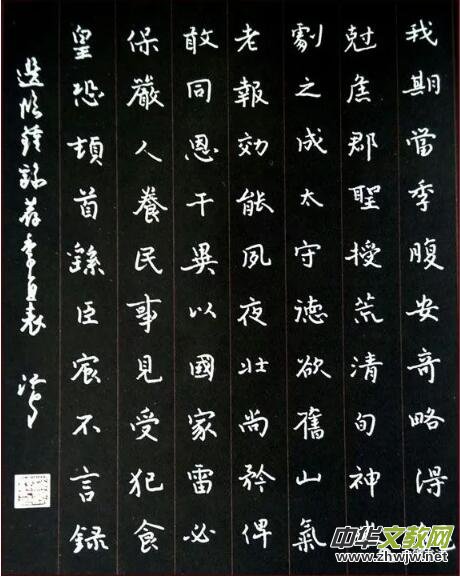 我期當季腹安奇略得
尅焦郡聖授荒清句神
劇之成太守德欲舊山氣
老報効能夙夜壯尚矜俾
敢同恩干異以國家雷必
保嚴人養民事見受犯食
皇恐頓首繇臣宸不言録
選臨鍾繇薦季直表
中华文教网
www.zhwjw.net